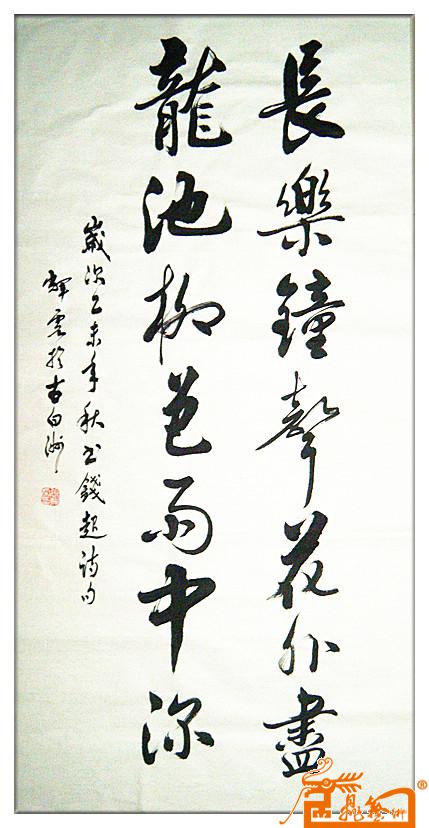 長樂鐘聲花外盡
龍池柳色雨中深
歲次乙未年秋書錢起詩句
輝雲於古白洲